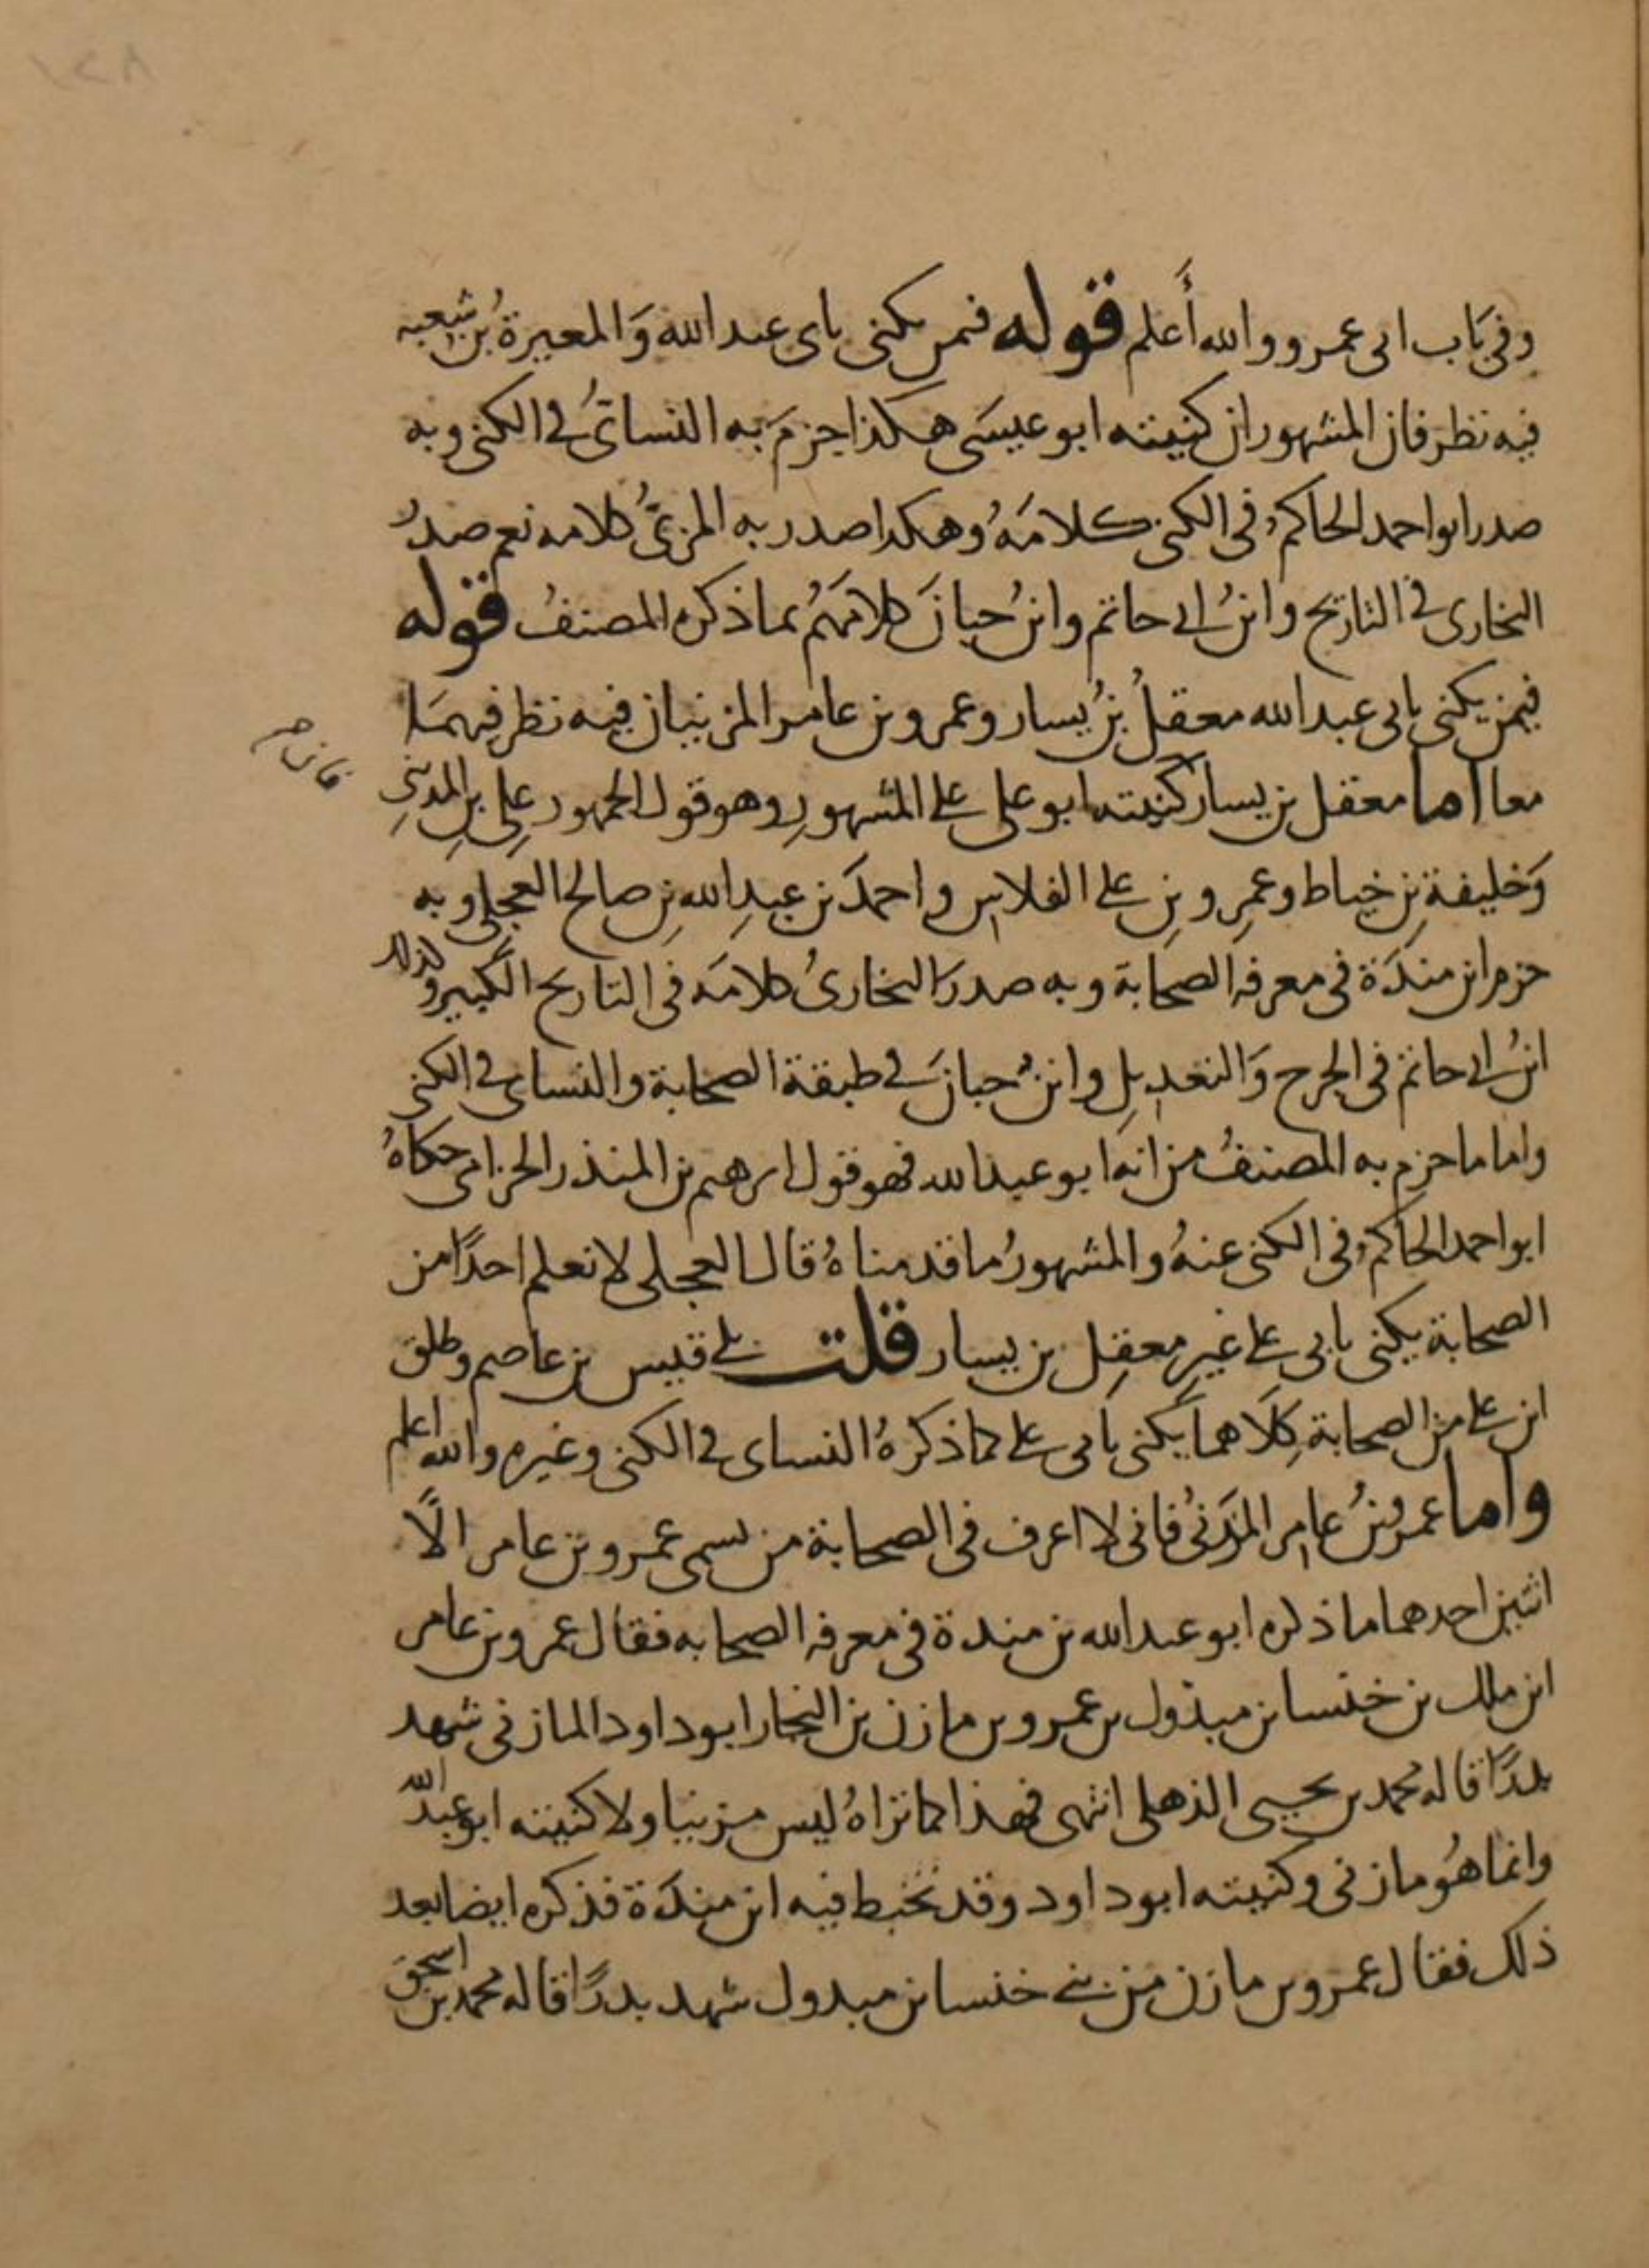 ١٢٨
وفي باب ابي عمرو والله أعلم قوله فمن يكنى بابي عبد الله وَالمغيرة بنُ شعبه
فيه نظر فان المشهور ان كنيته ابو عيسَى هكذا جزمَ به النسائىُ في الكنى وبه
صدر ابو احمد الحاكمُ في الكنى كلامَهُ وهكذا صدر به المزىُّ كلامه نعم صدرُ
البخارى في التاريخ وابنُ ابي حاتم وابنُ حبانَ كلامَهُم بما ذكره المصنفُ قوله
فيمن يكنى بابى عبد الله معقلُ بنُ يسار وعمرو بن عامر المزنيان فيه نظر فيهمَا
معا اما معقل بن يسار كنيته ابو على على المشهورِ وهو قول الجمهور علِى بنِ المدينىِ
فان صـ
وَخليفةَ بنِ خياط وعمرِو بنِ على الفلاس واحمدَ بن عبدِ الله بنِ صالح العجلى وبه
جزم ابن مندَة فى معرفه الصحابة وبه صدرَ البخارىُ كلامَه فى التاريخ الكبير وكذلك
ابنُ ابي حاتم فى الجرح وَالتعديلِ وابنُ حبانَ في طبقة الصحابة والنساى في الكنى
واما ما جزم به المصنفُ من انه ابو عبد الله فهو قول ابرهيم بن المنذر الحزامى حكاهُ
ابو احمد الحاكمُ فى الكنى عنهُ والمشهورُ ما قدمناهُ قال العجلى لا نعلم احدًا من
الصحابة يكنى بابى على غيرِ معقِل بن يسار قلت بلى قيس بن عاصم وطلق
ابن على من الصحابة كِلَاهما يكنى بابى على كما ذكرهُ النساى في الكنى وغيره والله اعلم
واما عمرو بنُ عامر المزنىُ فانى لا اعرف فى الصحابة من يسمى عمرو بن عامر الّا
اثنين احدهما ما ذكره ابو عبد الله بن مندة فى معرفه الصحابه فقال عمرو بن عامر
ابن ملك بن خنسا بن مبذول بن عمرو بن مازن بن النجار ابو داود المازنى شهد
بدرًا قاله محمد بن يحيى الذهلى انتهى فهذا كما تراهُ ليس مزنيا ولا كنيته ابو عبد الله
وانما هُو مازنى وكنيته ابو داود وقد تخبط فيه ابن مندَة فذكره ايضا بعد
ذلك فقال عمرو بن مازن من بنى خنسا بن مبذول شهد بدرًا قاله محمد بن اسحق